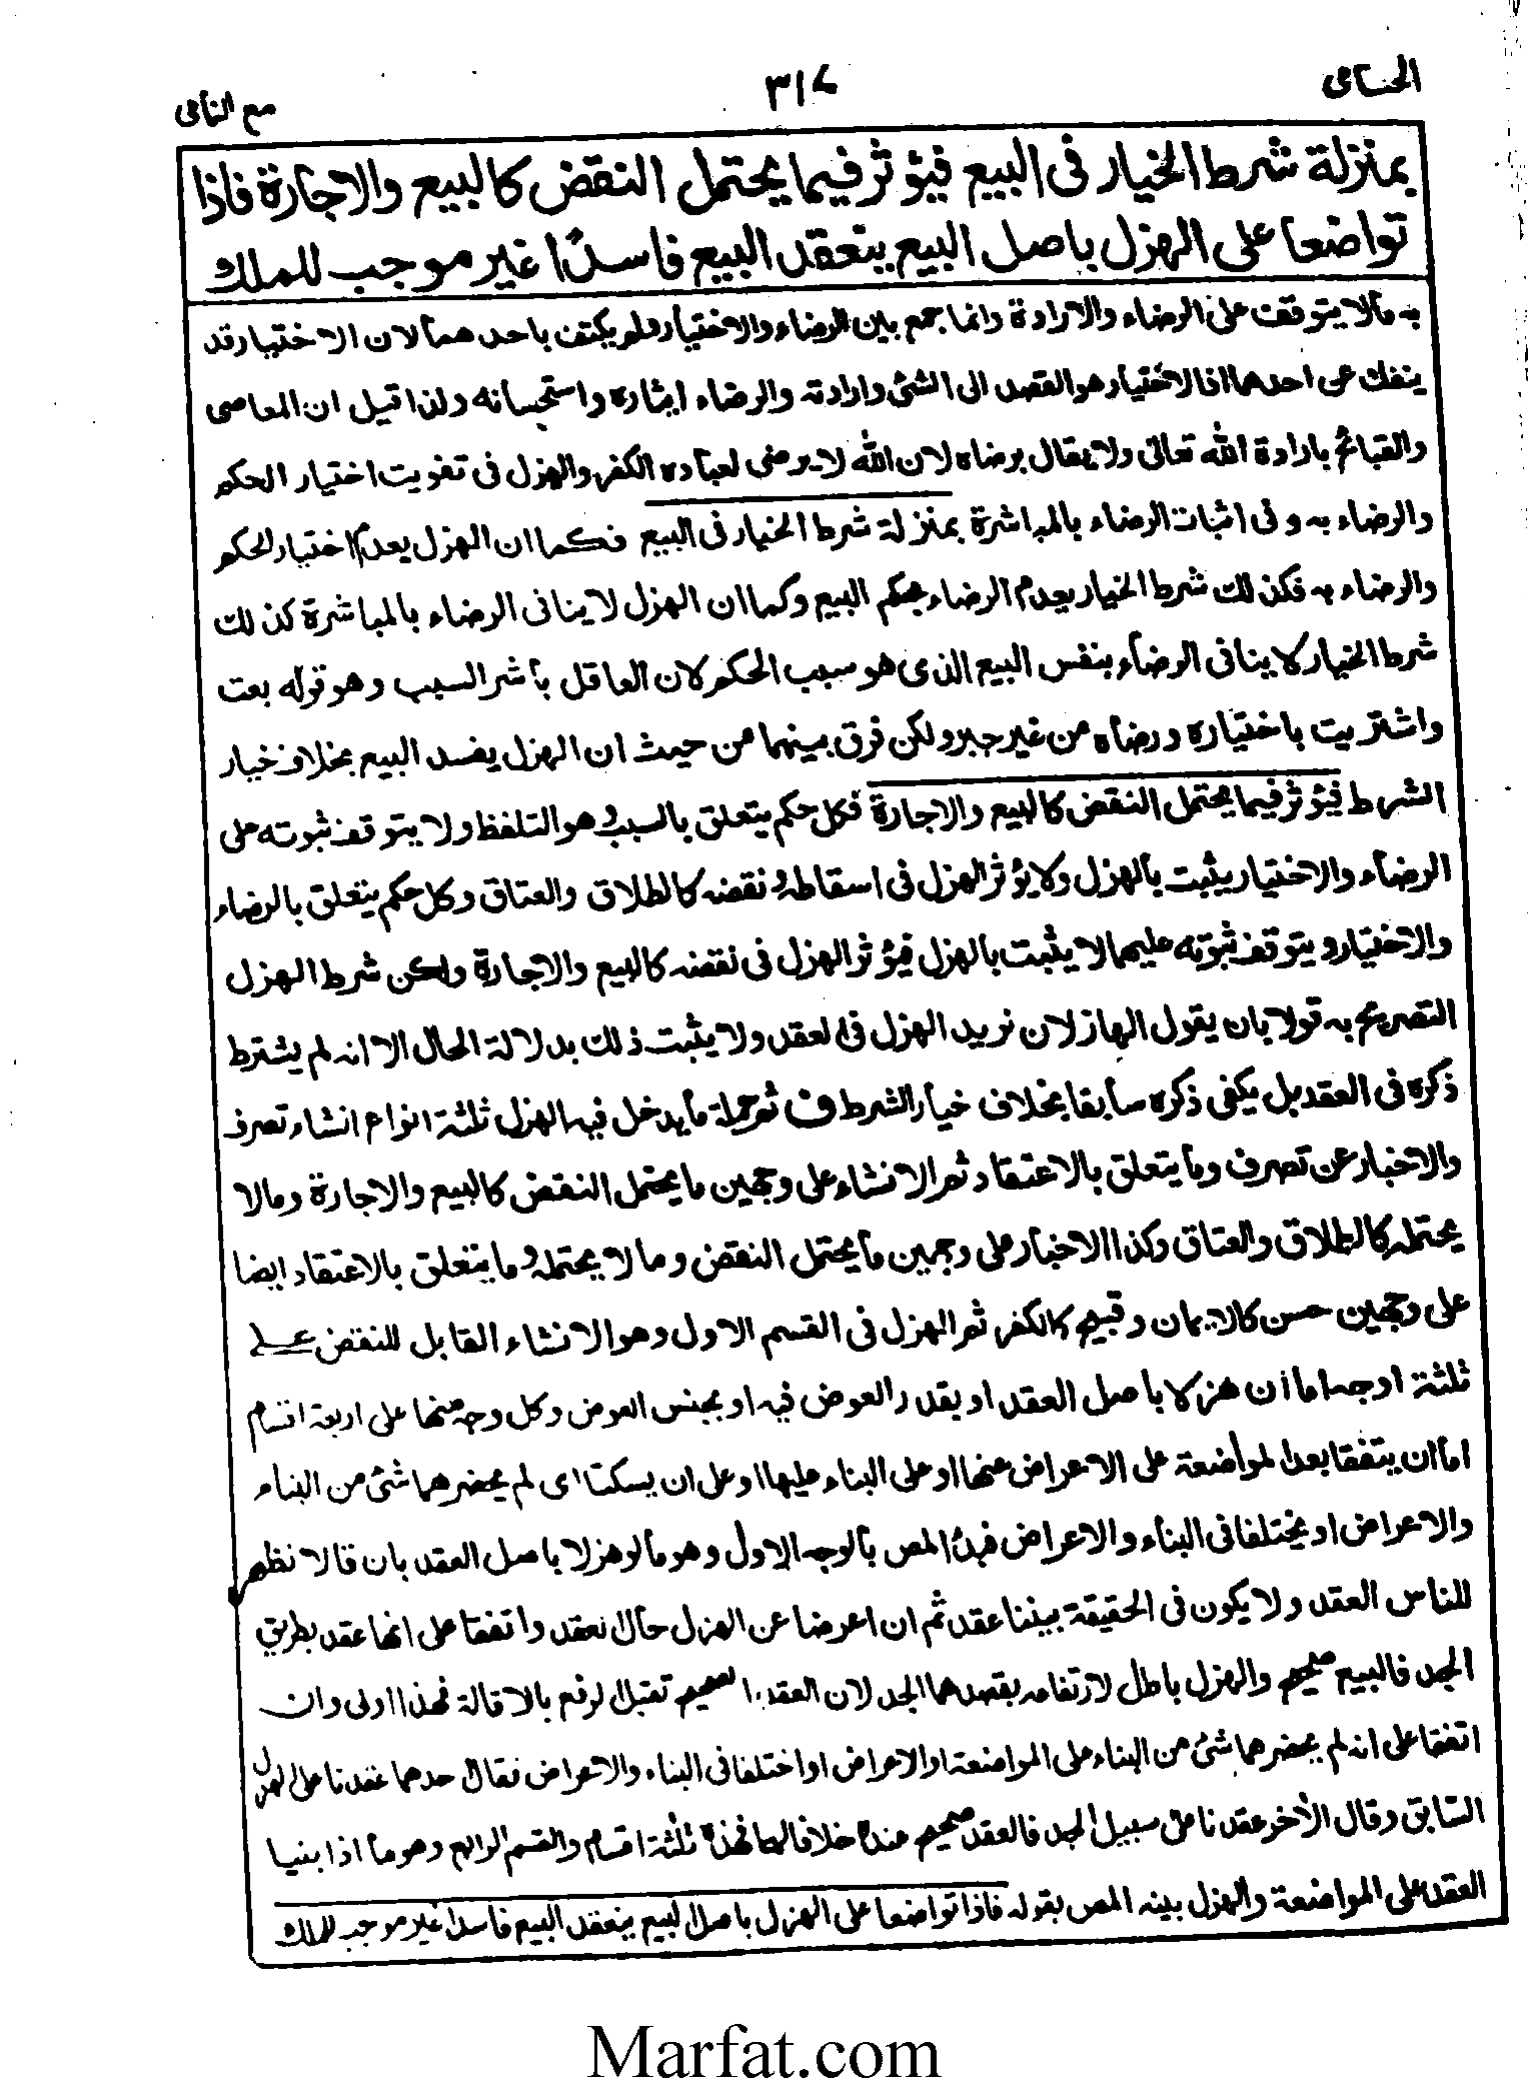 الحسامی
٣١٧
مع النامی
بمنزلة شرط الخيار فى البيع فيؤثر فيما يحتمل النقض كالبيع والاجارة فاذا
تواضعا على الهزل باصل البيع ينعقد البيع فاسدًا غير موجب للملك
به مالا يتوقف على الرضاء والارادة وانما جمع بين الرضاء والاختيار ولم يكتف باحدهما لان الاختيار قد
ينفك عن احدهما اذ الاختيار هو القصد الى الشئ وارادته والرضاء ايثاره واستحسانه ولذا قيل ان المعاصى
والقبائح بارادة الله تعالى ولا يقال برضاه لان الله لا يرضى لعباده الكفر والهزل فى تفويت اختيار الحكم
والرضاء به وفى اثبات الرضاء بالمباشرة بمنزلة شرط الخيار فى البيع فكما ان الهزل يعدم اختيار الحكم
والرضاء به فكذلك شرط الخيار يعدم الرضاء بحكم البيع وكما ان الهزل لا ينافى الرضاء بالمباشرة كذلك
شرط الخيار لا ينافى الرضاء بنفس البيع الذى هو سبب الحكم لان العاقل باشر السبب وهو قوله بعت
واشتريت باختياره ورضاه من غير جبر ولكن فرق بينهما من حيث ان الهزل يفسد البيع بخلاف خيار
الشرط فيؤثر فيما يحتمل النقض كالبيع والاجارة فكل حكم يتعلق بالسبب وهو التلفظ ولا يتوقف ثبوته على
الرضاء والاختيار يثبت بالهزل ولا يؤثر الهزل فى اسقاطه ونقضه كالطلاق والعتاق وكل حكم يتعلق بالرضاء
والاختيار ويتوقف ثبوته عليهما لا يثبت بالهزل فيؤثر الهزل فى نقضه كالبيع والاجارة ولكن شرط الهزل
التصريح به قولا بان يقول الهازلان نريد الهزل فى العقد ولا يثبت ذلك بدلالة الحال الا انه لم يشترط
ذكره فى العقد بل يكفى ذكره سابقا بخلاف خيار الشرط ف ثم جملة ما يدخل فيه الهزل ثلثة انواع انشاء تصرف
والاخبار عن تصرف وما يتعلق بالاعتقاد ثم الانشاء على وجهين ما يحتمل النقض كالبيع والاجارة ومالا
يحتمله كالطلاق والعتاق وكذا الاخبار على وجهين ما يحتمل النقض وما لا يحتمله وما يتعلق بالاعتقاد ايضا
على وجهين حسن كالايمان وقبيح كالكفر ثم الهزل فى القسم الاول وهو الانشاء القابل للنقض على
ثلثة اوجه اما ان هزلا باصل العقد او بقدر العوض فيه او بجنس العوض وكل وجه منها على اربعة اقسام
اما ان يتفقا بعد المواضعة على الاعراض عنها او على البناء عليها او على ان يسكتا اى لم يحضرهما شئ من البناء
والاعراض او يختلفا فى البناء والاعراض فبدأ المص بالوجه الاول وهو ما لو هزلا باصل العقد بان قالا نظهر
للناس العقد ولا يكون فى الحقيقة بيننا عقد ثم ان اعرضا عن الهزل حال العقد واتفقا على انها عقد بطريق
الجد فالبيع صحيح والهزل باطل لارتفاعه بقصدهما الجد لان العقد الصحيح تقبل الرفع بالاقالة فهذا اولى وان
اتفقا على انه لم يحضرهما شئ من البناء على المواضعة او الاعراض او اختلفا فى البناء والاعراض فقال احدهما عقدنا على الهزل
السابق وقال الآخر عقدنا على سبيل الجد فالعقد صحيح عنده خلافا لهما فهذه ثلثة اقسام والقسم الرابع وهو ما اذا بنيا
العقد على المواضعة والهزل بينه المص بقوله فاذا تواضعا على الهزل باصل البيع ينعقد البيع فاسدا غير موجب للملك
Marfat.com